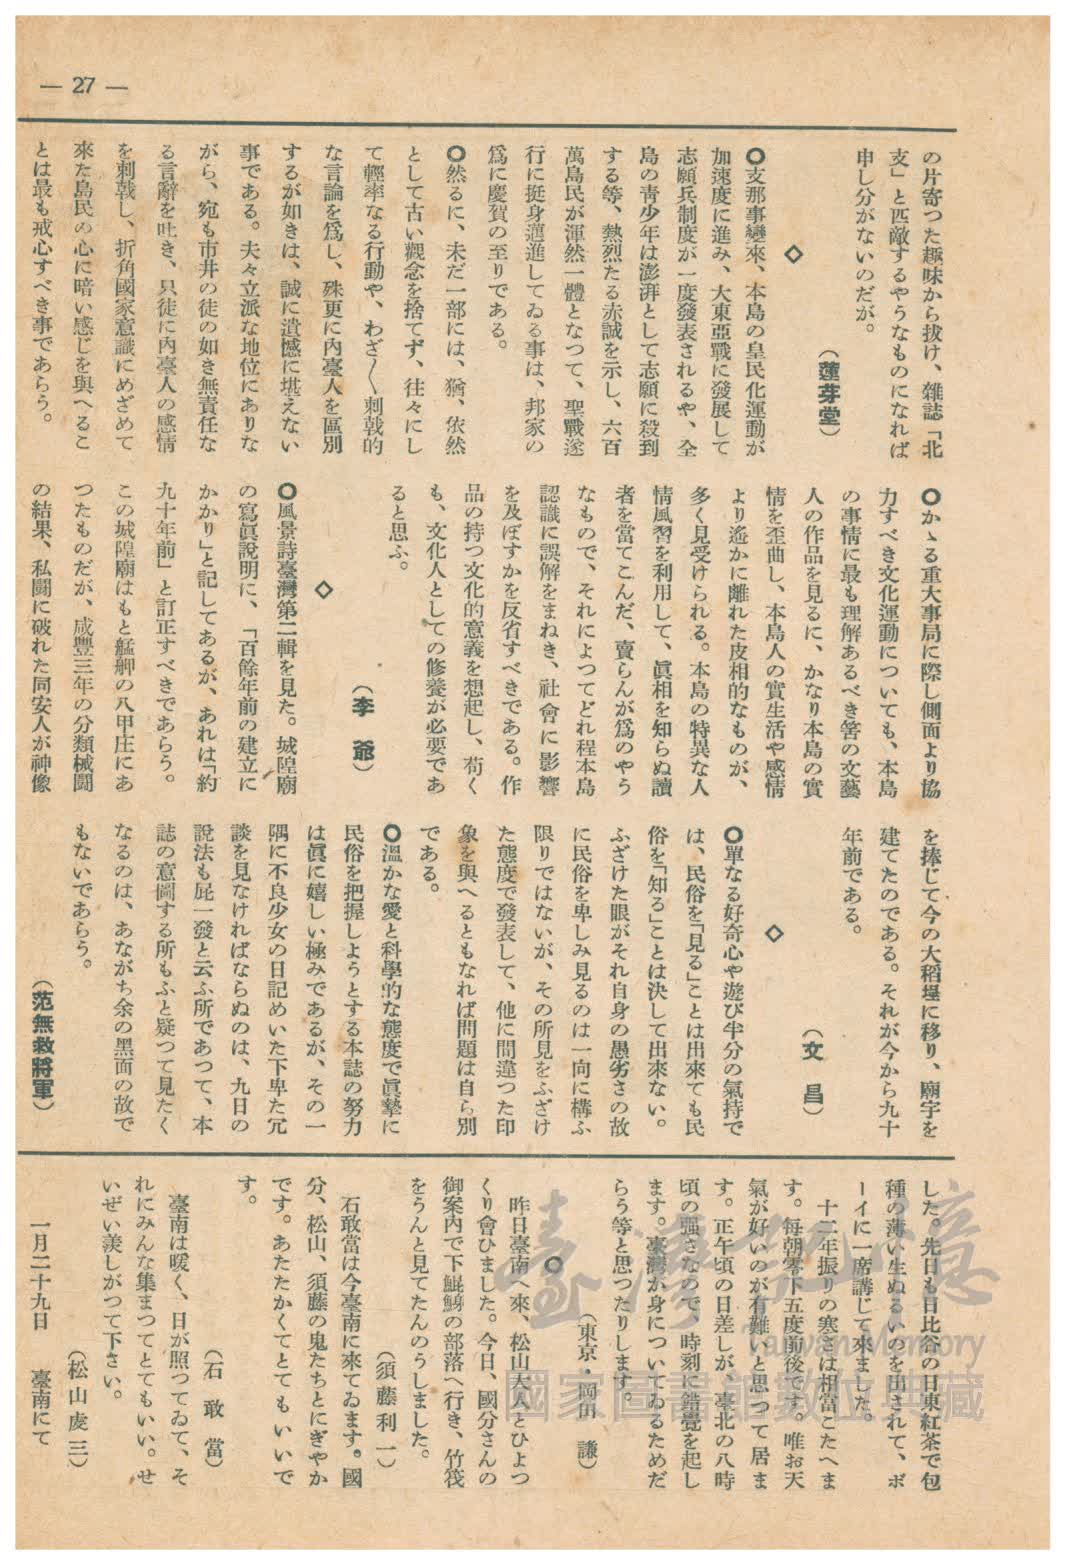 — 27 —
の片寄つた趣味から拔け、雜誌「北
支」と匹敵するやうなものになれば
申し分がないのだが。
（蓮芽堂）
◇
○支那事變來、本島の皇民化運動が
加速度に進み、大東亞戰に發展して
志願兵制度が一度發表されるや、全
島の青少年は澎湃として志願に殺到
する等、熱烈たる赤誠を示し、六百
萬島民が渾然一體となつて、聖戰遂
行に挺身邁進してゐる事は、邦家の
爲に慶賀の至りである。
○然るに、未だ一部には、猶、依然
として古い觀念を捨てず、往々にし
て輕率なる行動や、わざ〱刺戟的
な言論を爲し、殊更に內臺人を區別
するが如きは、誠に遺憾に堪えない
事である。夫々立派な地位にありな
がら、宛も市井の徒の如き無責任な
る言辭を吐き、只徒に內臺人の感情
を刺戟し、折角國家意識にめざめて
來た島民の心に暗い感じを與へるこ
とは最も戒心すべき事であらう。
○かゝる重大事局に際し側面より協
力すべき文化運動についても、本島
の事情に最も理解あるべき筈の文藝
人の作品を見るに、かなり本島の實
情を歪曲し、本島人の實生活や感情
より遙かに離れた皮相的なものが、
多く見受けられる。本島の特異な人
情風習を利用して、眞相を知らぬ讀
者を當てこんだ、賣らんが爲のやう
なもので、それによつてどれ程本島
認識に誤解をまねき、社會に影響
を及ぼすかを反省すべきである。作
品の持つ文化的意義を想起し、苟く
も、文化人としての修養が必要であ
ると思ふ。
（李爺）
◇
○風景詩臺灣第二輯を見た。城隍廟
の寫眞說明に、「百餘年前の建立に
かかり」と記してあるが、あれは「約
九十年前」と訂正すべきであらう。
この城隍廟はもと艋舺の八甲庄にあ
つたものだが、咸豐三年の分類械鬪
の結果、私鬪に破れた同安人が神像
を捧じて今の大稻埕に移り、廟宇を
建てたのである。それが今から九十
年前である。
（文昌）
◇
○單なる好奇心や遊び半分の氣持で
は、民俗を「見る」ことは出來ても民
俗を「知る」ことは決して出來ない。
ふざけた眼がそれ自身の愚劣さの故
に民俗を卑しみ見るのは一向に構ふ
限りではないが、その所見をふざけ
た態度で發表して、他に間違つた印
象を與へるともなれば問題は自ら別
である。
○溫かな愛と科學的な態度で眞摯に
民俗を把握しようとする本誌の努力
は眞に嬉しい極みであるが、その一
隅に不良少女の日記めいた下卑た冗
談を見なければならぬのは、九日の
說法も屁一發と云ふ所であつて、本
誌の意圖する所もふと疑つて見たく
なるのは、あながち余の黑面の故で
もないであらう。
（范無救將軍）
した。先日も日比谷の日東紅茶で包
種の薄い生ぬるいのを出されて、ボ
ーイに一席講じて來ました。
十二年振りの寒さは相當こたへま
す。每朝零下五度前後です。唯お天
氣が好いのが有難いと思つて居ま
す。正午頃の日差しが、臺北の八時
頃の强さなので、時刻に錯覺を起し
ます。臺灣が身についてゐるためだ
らう等と思つたりします。
（東京・岡田謙）
○
昨日臺南へ來、松山大人とひよつ
くり會ひました。今日、國分さんの
御案內で下鯤鯓の部落へ行き、竹筏
をうんと見てたんのうしました。
（須藤利一）
石敢當は今臺南に來てゐます。國
分、松山、須藤の鬼たちとにぎやか
です。あたたかくてとてもいいで
す。
（石敢當）
臺南は暖く、日が照つてゐて、そ
れにみんな集まつてとてもいい。せ
いぜい羨しがつて下さい。
（松山虔三）
一月二十九日　臺南にて
臺灣記憶
Taiwan Memory
國家圖書館數位典藏